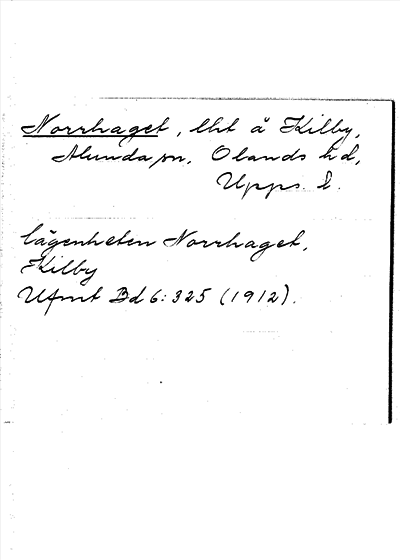 Norrhaget, lht å Kilby,
Alunda sn, Olands hd,
Upps. l.
lägenheten Norrhaget,
Kilby
Ufmt Bd 6: 325 (1912).